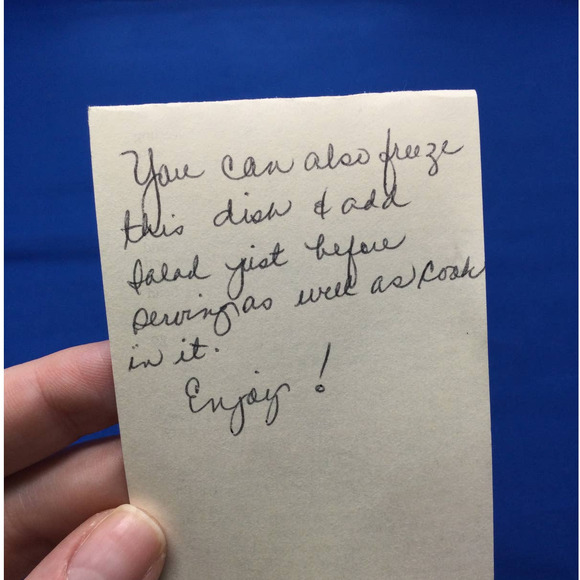 You can also freeze
this dish & add
salad just before
serving as well as cook
in it.
Enjoy!